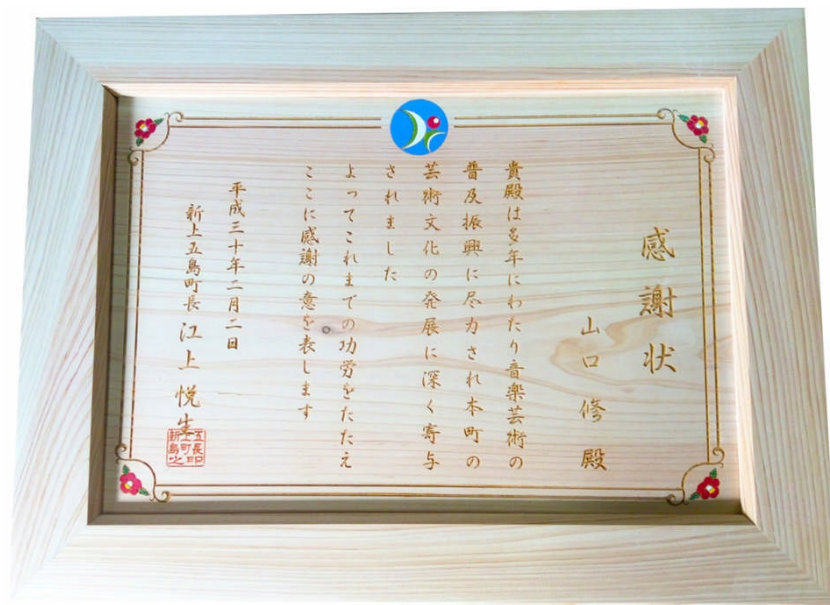 感謝状
山口修殿
貴殿は多年にわたり音楽芸術の
普及振興に尽力され本町の
芸術文化の発展に深く寄与
されました
よってこれまでの功労をたたえ
ここに感謝の意を表します
平成三十年二月二日
新上五島町長 江上悦生